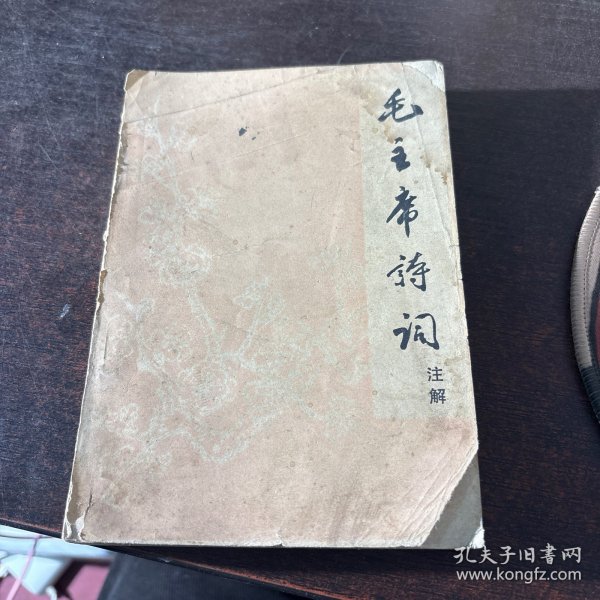 毛主席詩词
注解
孔夫子旧書网
www.kongfz.com